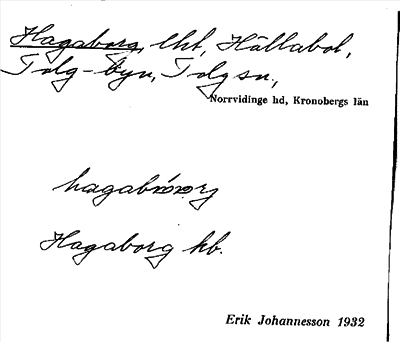 Hagaborg, lht, Hällabol,
Tolg-byn, Tolg sn.,
Norrvidinge hd, Kronobergs län
Hagaborg hb.
Erik Johannesson 1932